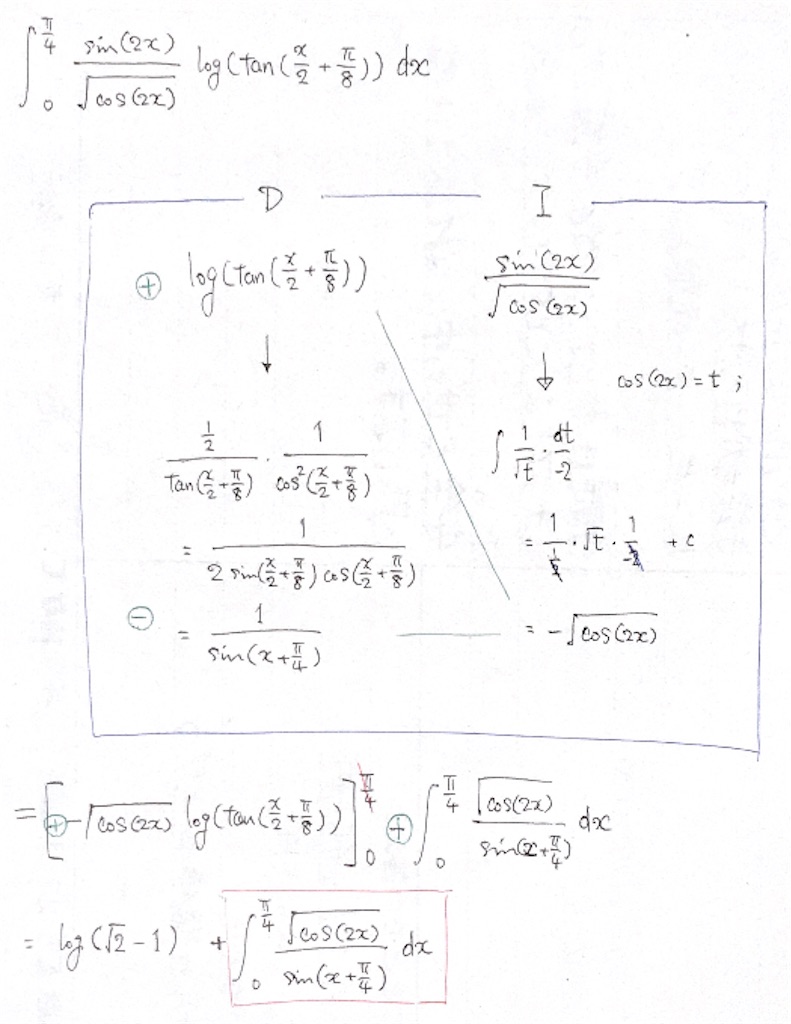 ∫_0^{π/4} sin(2x)/√cos(2x) log(tan(x/2 + π/8)) dx
D I
⊕ log(tan(x/2 + π/8)) sin(2x)/√cos(2x)
↓ ↓ cos(2x) = t ;
(1/2)/tan(x/2 + π/8) · 1/cos²(x/2 + π/8) ∫ 1/√t · dt/-2
= 1/(2 sin(x/2 + π/8) cos(x/2 + π/8)) = 1/(1/2) · √t · 1/-2 + c
⊖ = 1/sin(x + π/4) = -√cos(2x)
= [⊕ -√cos(2x) log(tan(x/2 + π/8))]_0^{π/4} ⊕ ∫_0^{π/4} √cos(2x)/sin(x + π/4) dx
= log(√2 - 1) + ∫_0^{π/4} √cos(2x)/sin(x + π/4) dx